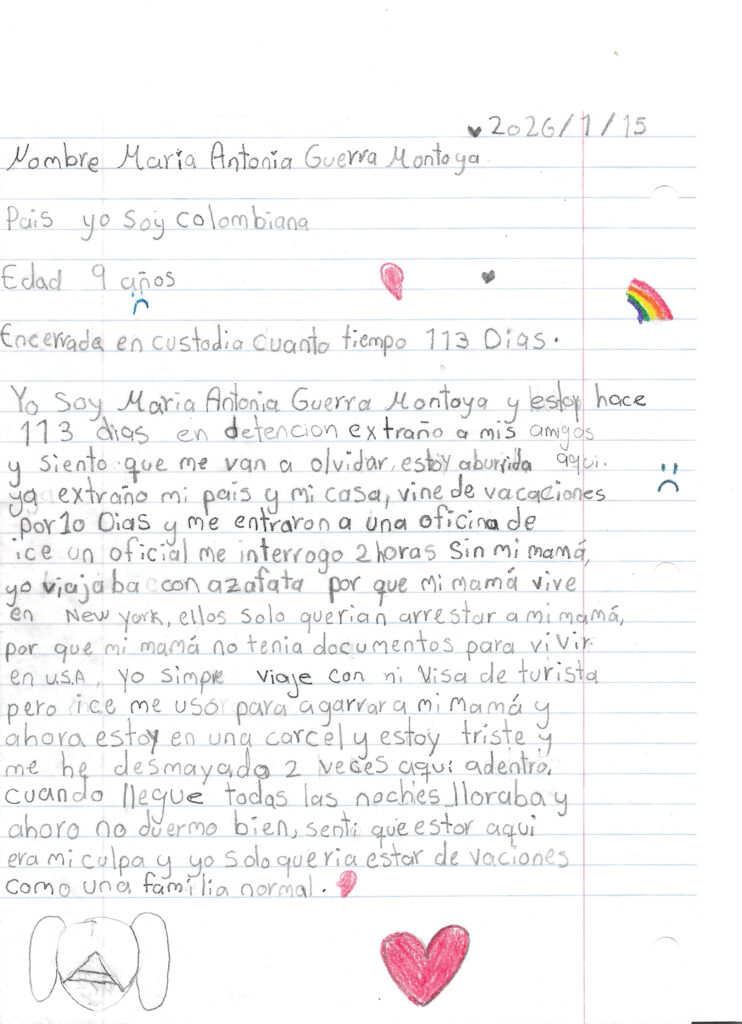 2026/1/15
Nombre Maria Antonia Guerra Montoya
Pais yo soy colombiana
Edad 9 años
Encerrada en custodia cuanto tiempo 113 Dias.
Yo soy Maria Antonia Guerra Montoya y estoy hace
113 dias en detencion extraño a mis amigos
y siento que me van a olvidar, estoy aburrida aqui.
ya extraño mi pais y mi casa, vine de vacaciones
por 10 Dias y me entraron a una oficina de
ice un oficial me interrogo 2 horas sin mi mamá,
yo viajaba con azafata por que mi mamá vive
en New York, ellos solo querian arrestar a mi mamá,
por que mi mamá no tenia documentos para vivir
en U.S.A, yo simpre viaje con mi visa de turista
pero ice me usó para agarrar a mi mamá y
ahora estoy en una carcel y estoy triste y
me he desmayado 2 veces aqui adentro,
cuando llegue todas las noches lloraba y
ahora no duermo bien, senti que estar aqui
era mi culpa y yo solo queria estar de vaciones
como una familia normal.